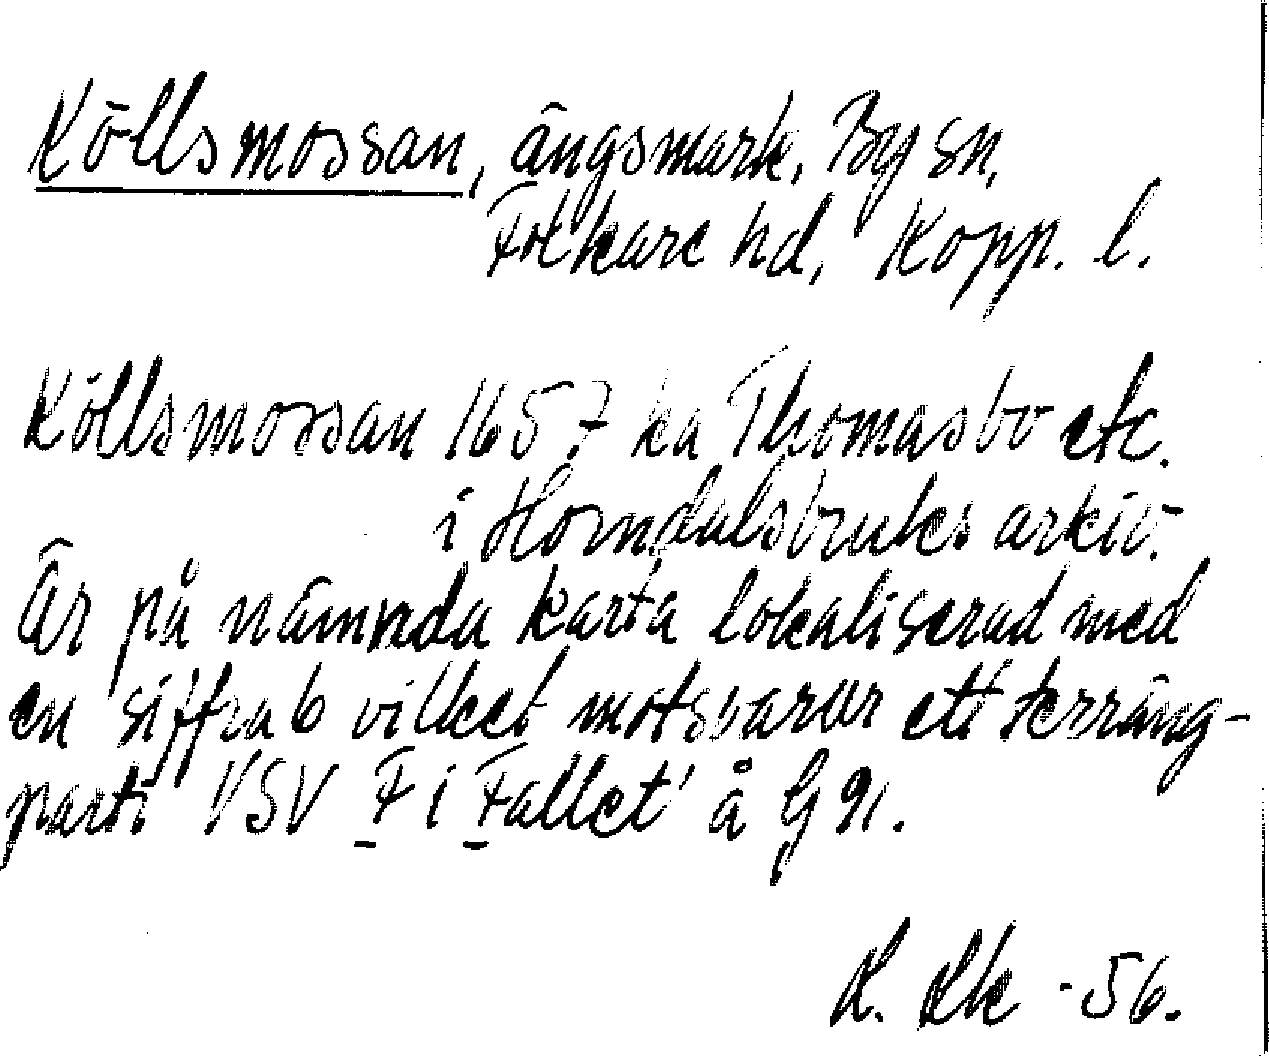 Köllsmossan, ängsmark, By sn,
Folkare hd, Kopp. l.
Köllsmossan 1657 ka Thomasbo etc.
i Horndalsbruks arkiv.
Är på nämnda karta lokaliserad med
en siffra 6 vilket motsvarar ett terräng-
parti VSV F i Fallet' å G 91.
-56.